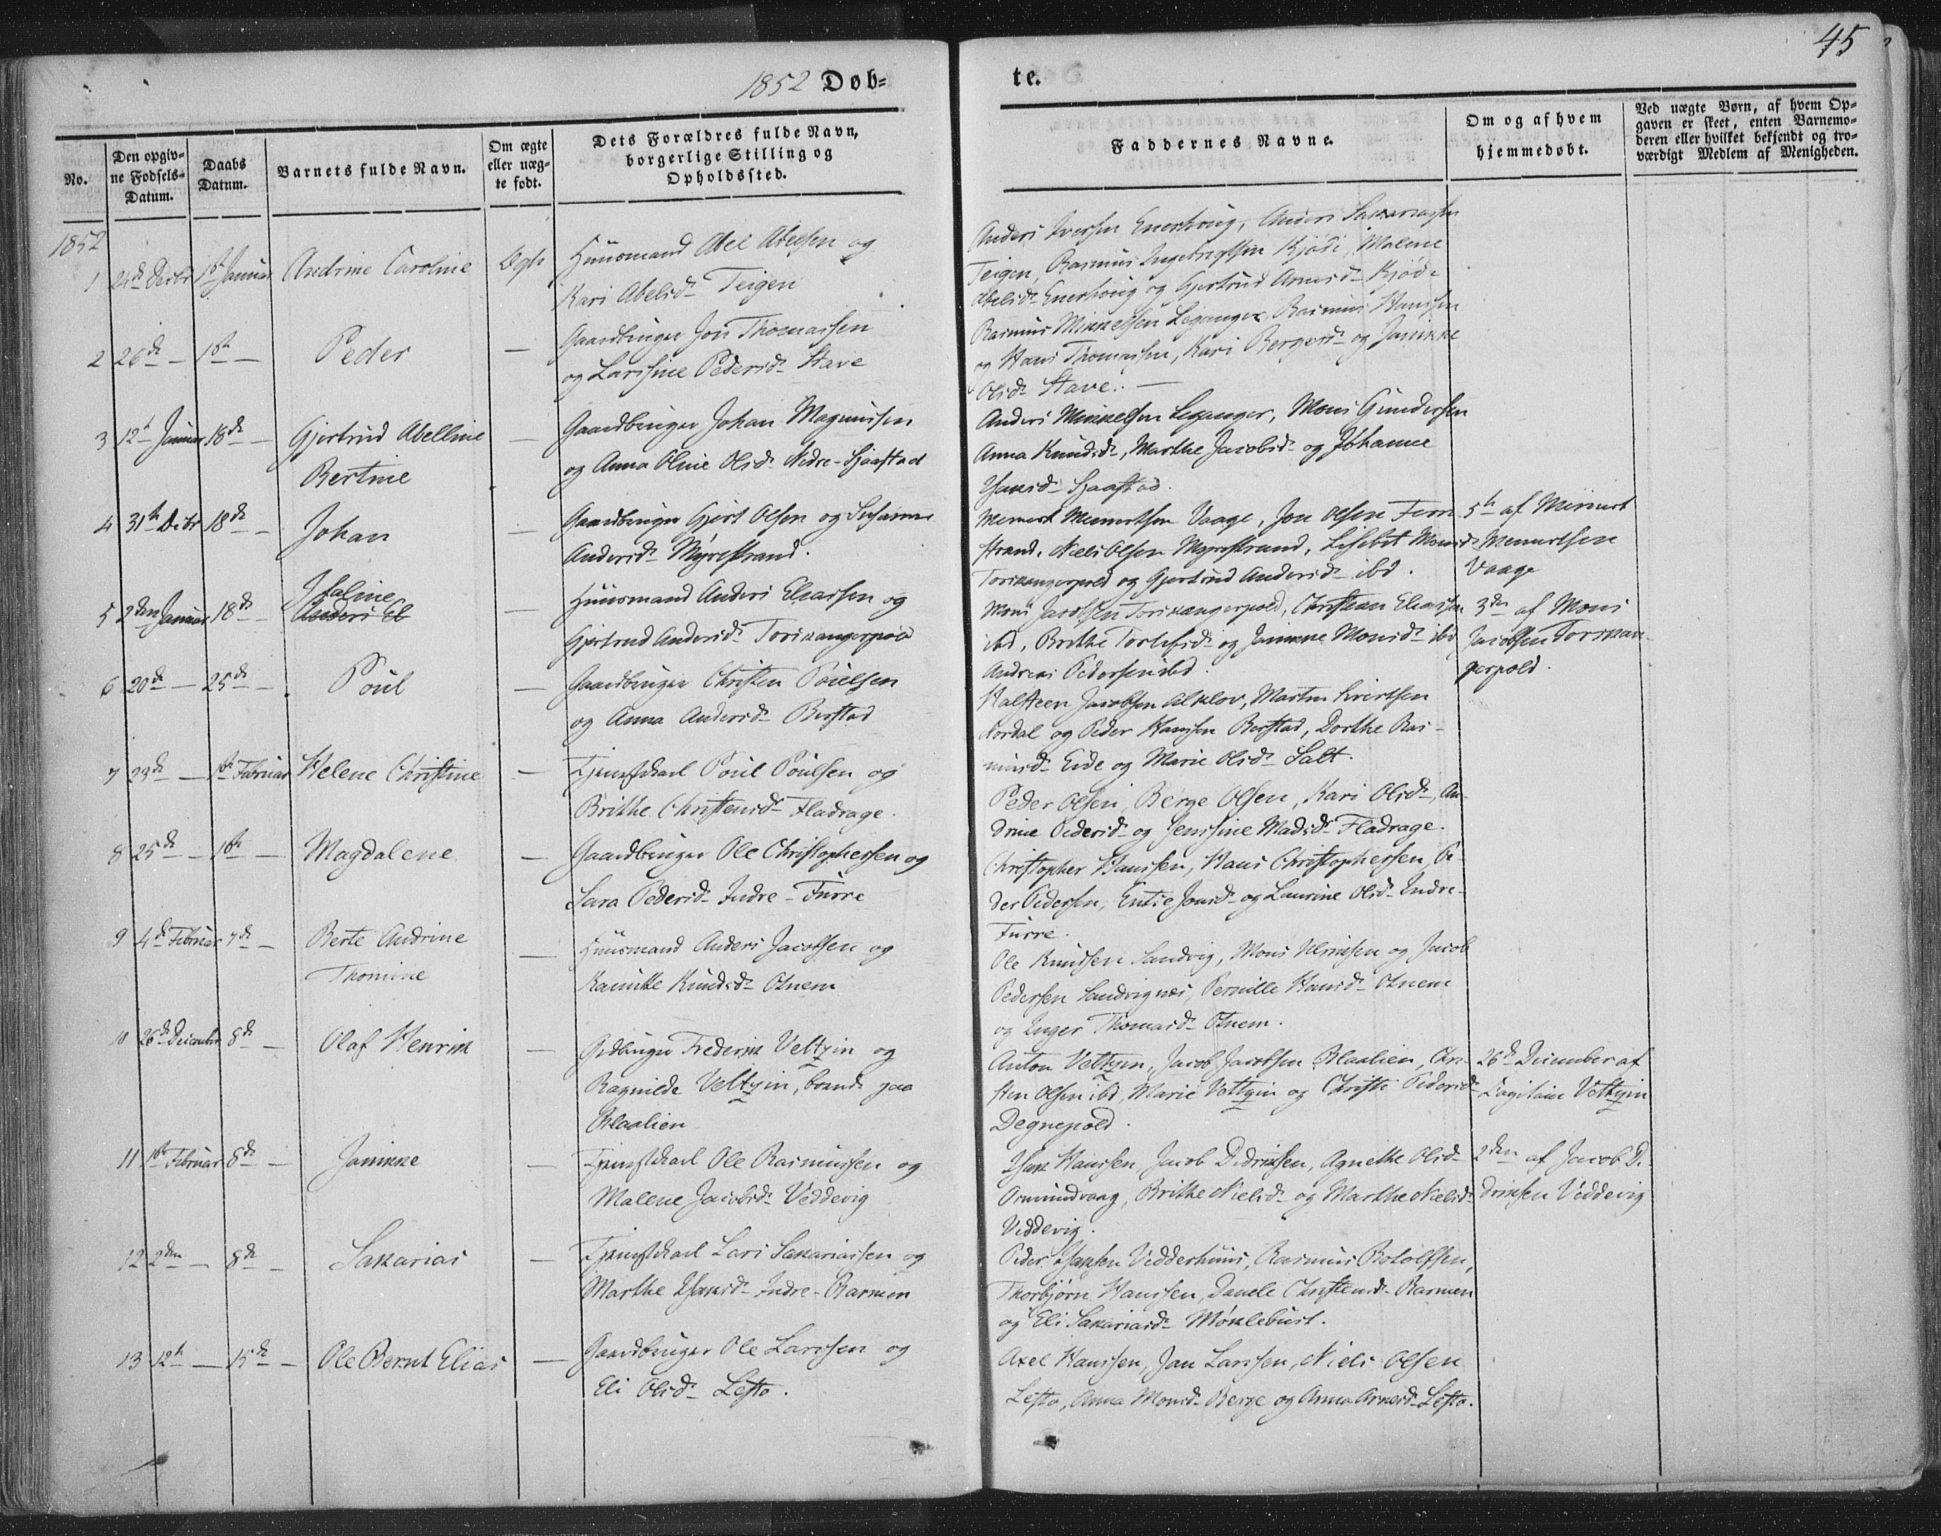 45
1852 Døb-
te.
No.
Den opgiv-
ne Fødsels-
Datum.
Daabs
Datum.
Barnets fulde Navn.
Om ægte
eller uæg-
te født.
Dets Forældres fulde Navn,
borgerlige Stilling og
Opholdssted.
Faddernes Navne.
Om og af hvem
hjemmedøbt.
Ved uægte Børn, af hvem Op-
gaven er skeet, enten Barnemo-
deren eller hvilket bekjendt og tro-
værdigt Medlem af Menigheden.
1852
1 24de Decbr 1ste Januar Andrine Caroline Ægte
Huusmand Abel Abelsen og
Kari Abelsd. Teigen
Anders Iversen Enerhoug, Anders Sakariassen
Teigen, Rasmus Ingebrigtsen Kjøde, Malene
Abelsd. Enerhoug og Gjertrud Arnesd. Kjøde
2 26de — 1ste — Peder —
Gaardbruger Jon Thomassen
og Larssine Pedersd. Stave
Rasmus Mikkelsen Leganger, Rasmus Hanssen
og Hans Thomassen, Kari Bergesd. og Janikke
Olsd. Stave. —
3 12te Januar 18de — Gjertrud Abelline
Bertine —
Gaardbruger Johan Magnussen
og Anna Oline Olsd. Nedre-Hjaastad
Anders Mikkelsen Leganger, Mons Gundersen
Anna Knudsd., Marthe Jacobsd. og Johanne
Isaksd. Hjaastad.
4 31te Decbr 18de — Johan —
Gaardbruger Gjert Olsen og Susanne
Andersd. Myrestrand.
Meinert Meinertsen Vaage, Jon Olsen
strand, Niels Olsen Myrestrand, Lisebet Monsd.
Torskangerpold og Gjertrud Andersd. ibd.
5te af Meinert
Meinertsen
Vaage
5 2den Januar 18de — Anders El
Huusmand Anders Eliassen og
Gjertrud Andersd. Torskangerpold
Mons Jacobsen Torskangerpold, Christian Eliassen
ibd, Brithe Torlefsd. og Janikke Monsd. ibd
Andreas Pedersen ibd.
3den af Mons
Jacobsen Torskan-
gerpold.
6 20de — 25de — Poul —
Gaardbruger Christen Poulsen
og Anna Andersd. Berstad
Halsteen Jacobsen Alklov, Martin Sivertsen
Nordal og Peder Hanssen Berstad, Dorthe Ras-
musd. Eide og Marie Olsd. Salt.
7 23de — 1ste Februar Helene Christine —
Tjenestekarl Poul Poulsen og
Brithe Christensd. Fladrage.
Peder Olsen, Berge Olsen, Kari Olsd., An-
drine Pedersd. og Jenssine Madsd. Fladrage.
8 25de — 1ste — Magdalene —
Gaardbruger Ole Christophersen og
Sara Pedersd. Indre-Furre
Christopher Hanssen, Hans Christophersen, Pe-
der Pedersen, Entie Jonsd. og Laurine Olsd. Indre-
Furre.
9 4de Februar 7de — Berte Andrine
Thomine —
Huusmand Anders Jacobsen og
Knudsd. Otnem
Ole Knudsen Sandvig, Mons og Jacob
Pedersen Sandvignæs, Pernille Hansd. Otnem
og Inger Thomasd. Otnem.
10 26de December 8de — Olaf Henrik —
Gdbruger Frederik Veltzin og
Ragnilde Veltzin, boende paa
Blaalien
Anton Veltzin, Jacob Jacobsen Blaalien, Chri-
sten Olsen ibd, Marie Veltzin og Christi Pedersd.
Degnepold.
26de December af
Capitaine Veltzin
11 1ste Februar 8de — Janikke —
Tjenestekarl Ole Rasmussen og
Malene Jacobsd. Veddevig
Isak Hanssen, Jacob Didriksen, Agnethe Olsd.
Osmundvaag, Brithe Nielsd. og Marthe Nielsd.
Veddevig.
2den af Jacob Di-
driksen Veddevig
12 2den — 8de — Sakarias —
Tjenestekarl Lars Sakariassen og
Marthe Isaksd. Indre-Barmen
Peder Isaksen Vedderhuus, Rasmus Botolfsen,
Thorbjørn Hanssen, Danele Christensd. Barmen
og Eli Sakariasd. Møkleburst.
13 12te — 15de — Ole Bernt Elias —
Gaardbruger Ole Larssen og
Eli Olsd. Lesto.
Axel Hanssen, Jan Larssen, Niels Olsen
Lesto, Anna Monsd. Berge og Anna Arnesd. Lesto.